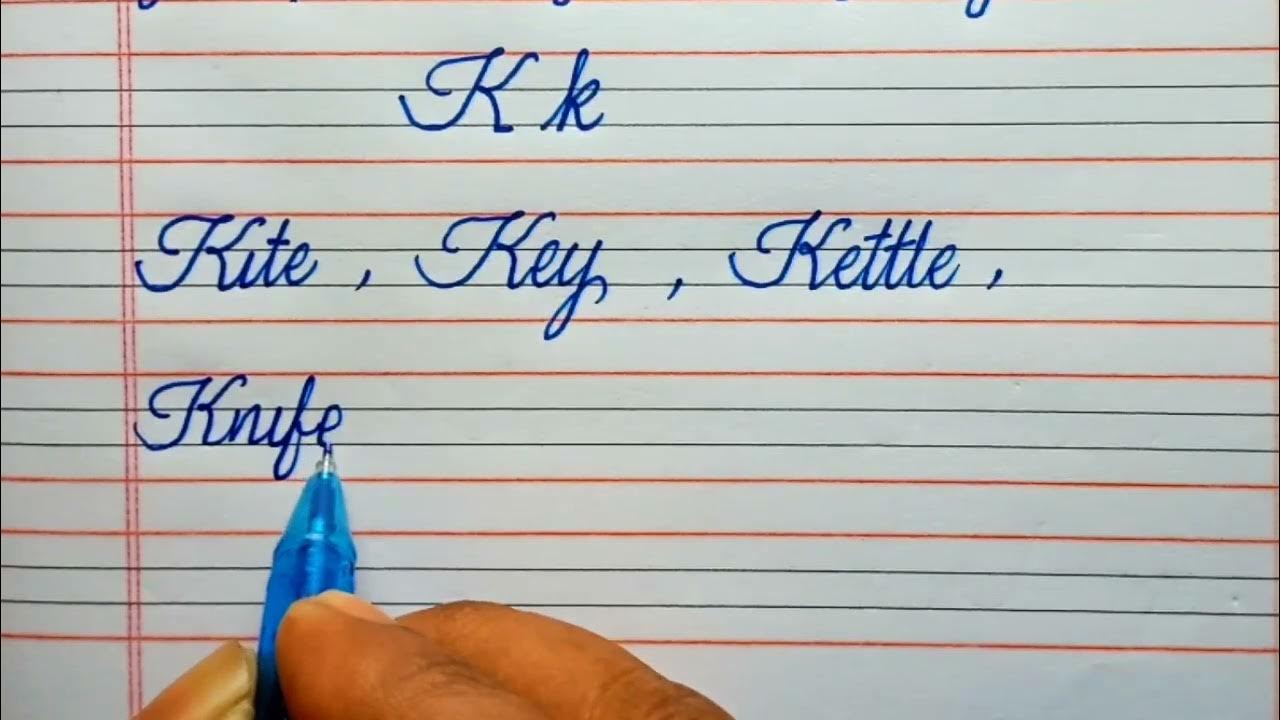 K k
Kite , Key , Kettle ,
Knife